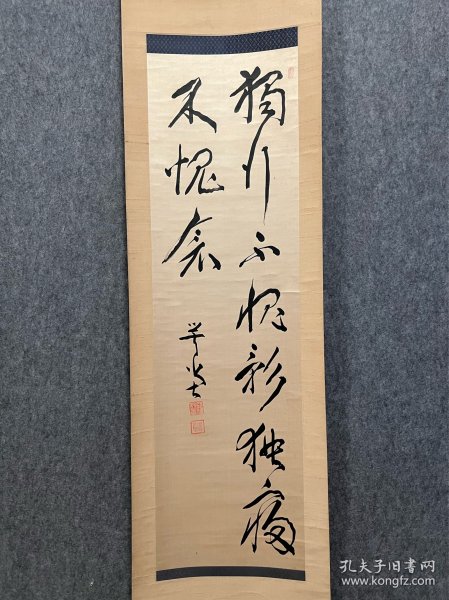 獨行不愧影独寝
不愧衾
孔夫子旧书网
www.kongfz.com